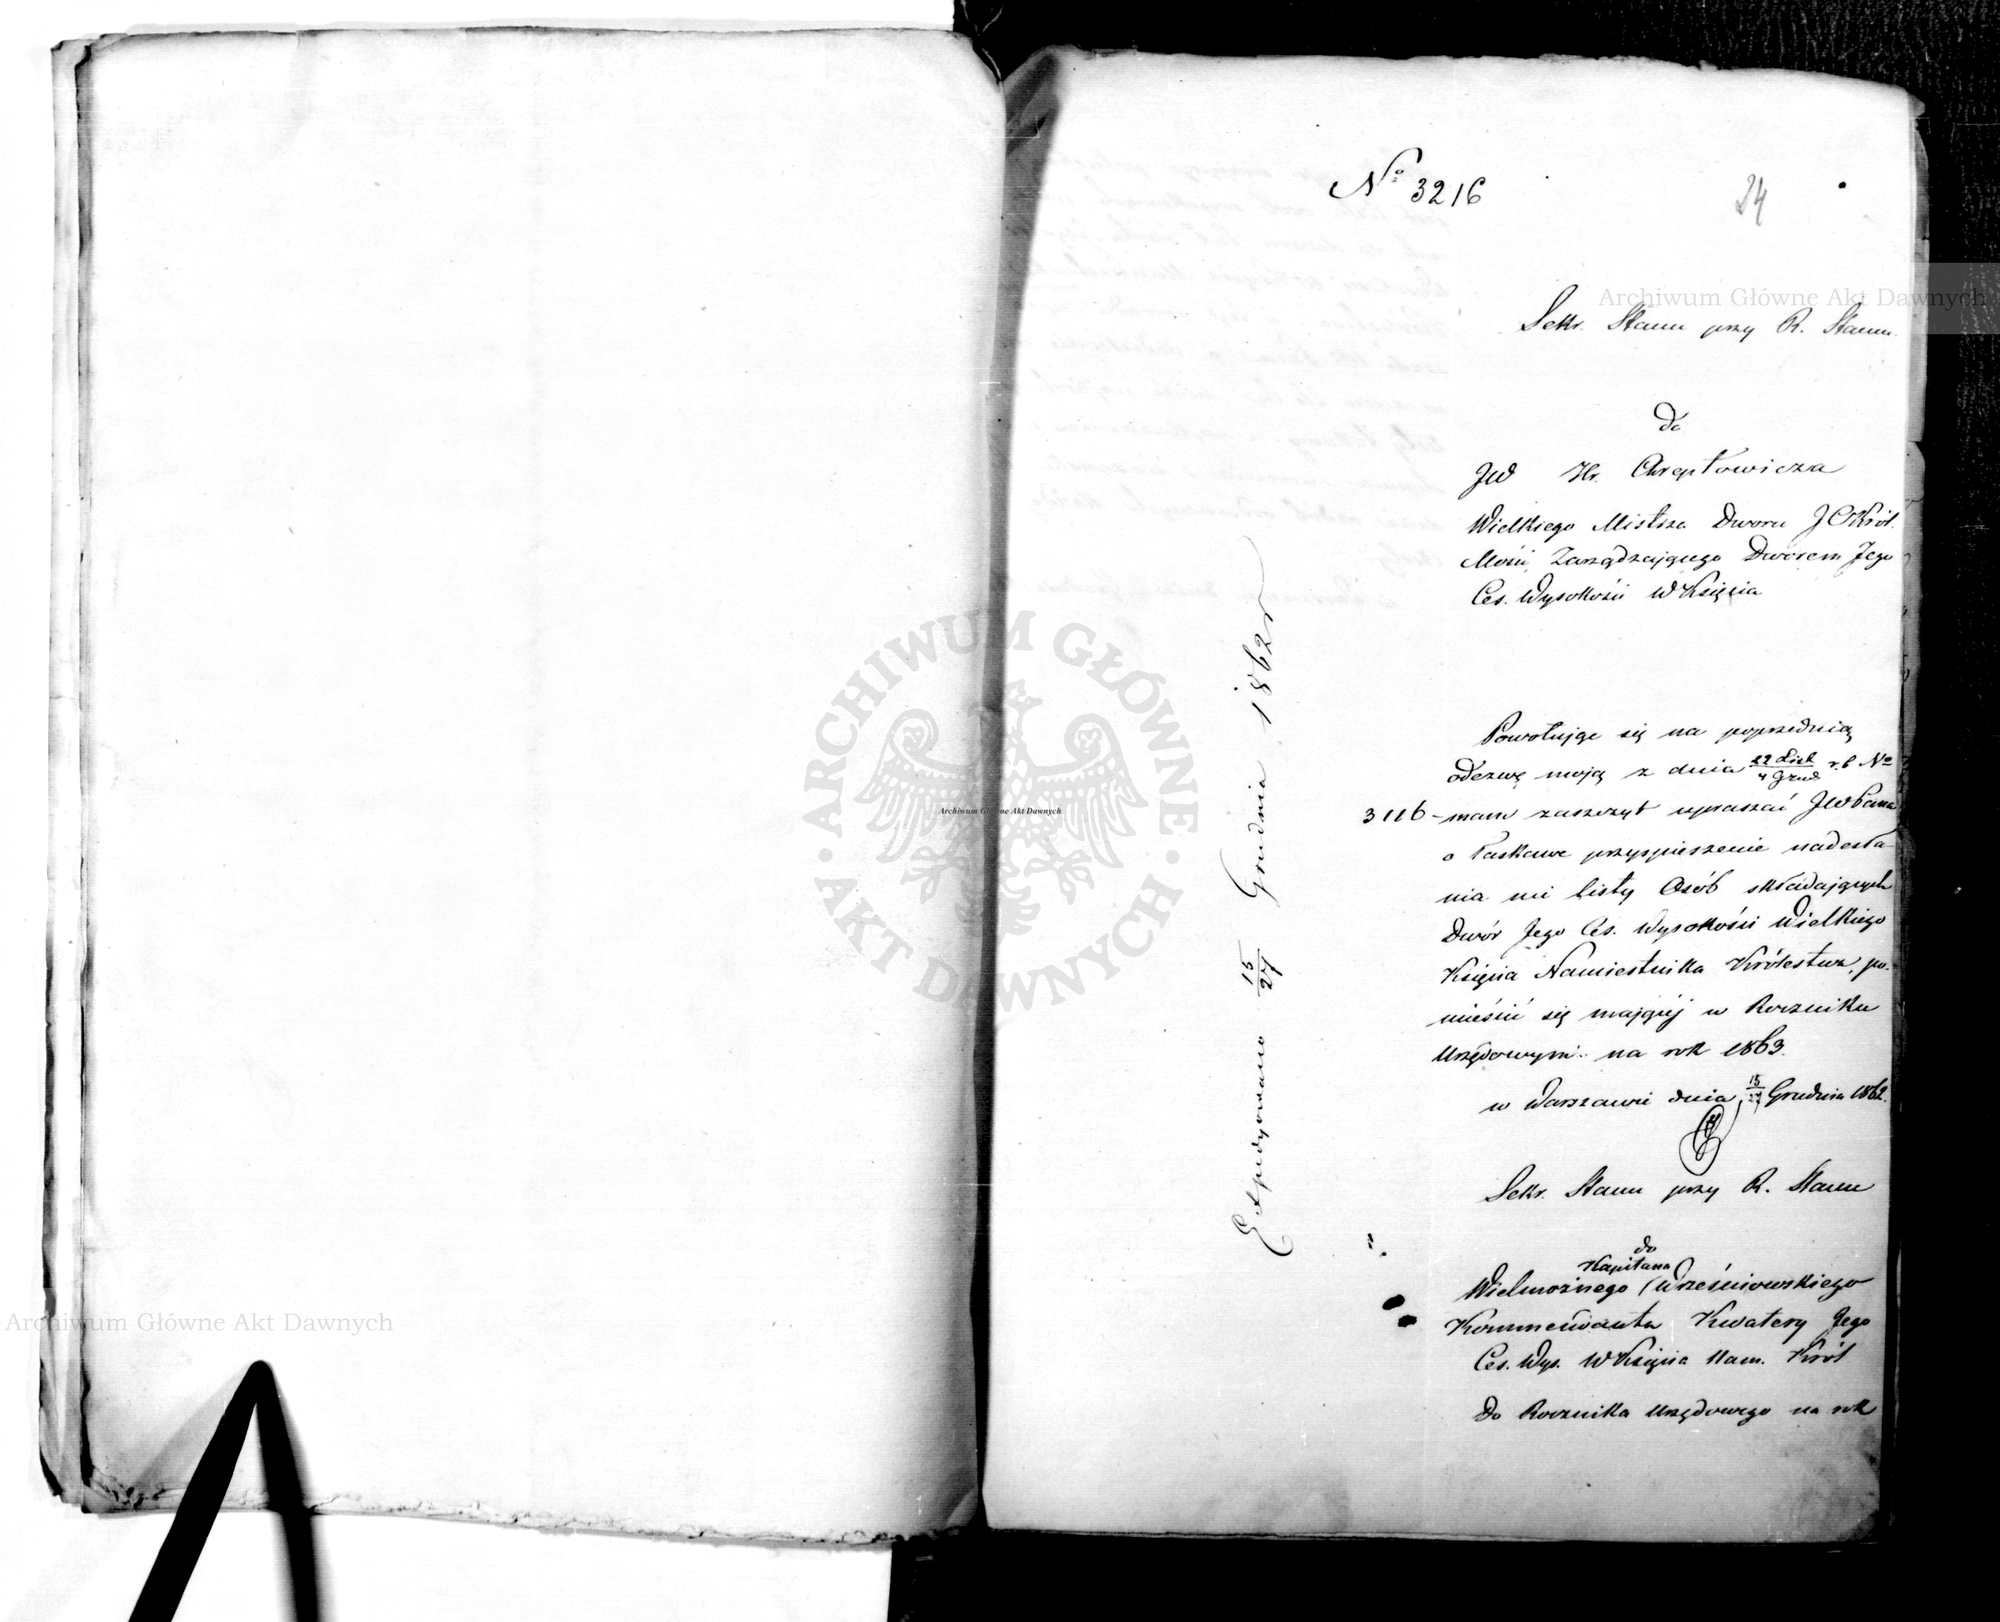 No 3216
24
Sekr. Stanu przy R. Stanu.
do
JW Hr. Chreptowicza
Wielkiego Mistrza Dworu J C Król.
Mości, Zarządzającego Dworem Jego
Ces. Wysokości W Księcia
Powołując się na poprzednią
odezwę moją z dnia 22 List / 4 Grud r. b No
3116 – mam zaszczyt upraszać JW Pana
o łaskawe przyspieszenie nadesła-
nia mi listy Osób składających
Dwór Jego Ces. Wysokości Wielkiego
Księcia Namiestnika Królestwa, po-
mieścić się mającej w Roczniku
Urzędowym na rok 1863.
w Warszawie dnia 15/27 Grudnia 1862.
Expedyowano 15/27 Grudnia 1862 r
Sekr. Stanu przy R. Stanu
do
Kapitana
Wielmożnego Wześniowskiego
Kommendanta Kwatery Jego
Ces. Wys. W Księcia Nam. Król
Do Rocznika Urzędowego na rok
Archiwum Główne Akt Dawnych
Archiwum Główne Akt Dawnych
Archiwum Główne Akt Dawnych
ARCHIWUM GŁÓWNE
AKT DAWNYCH